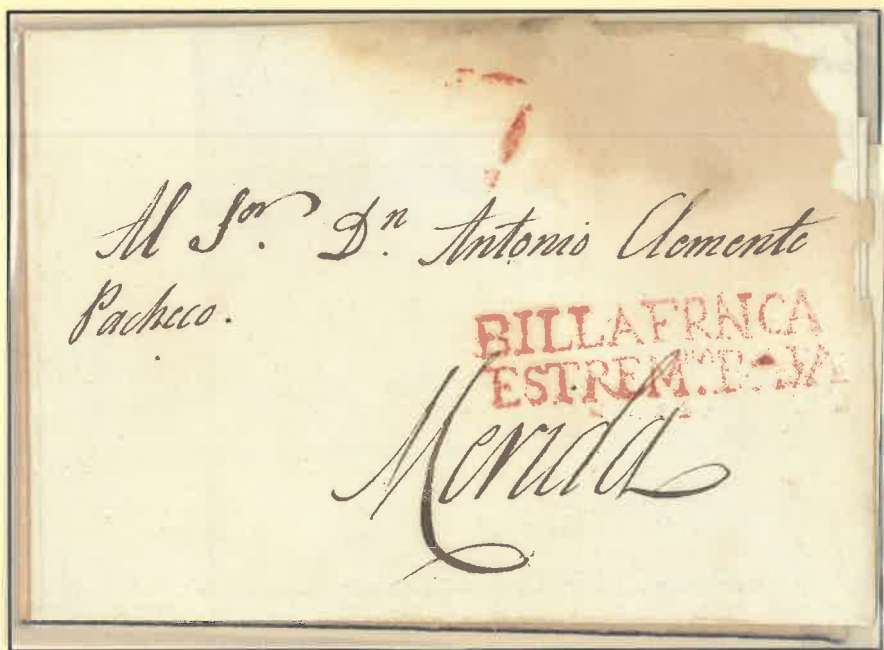 Al Sor. Dn. Antonio Clemente
Pacheco.
BILLAFRNCA
ESTREM.ra
Merida